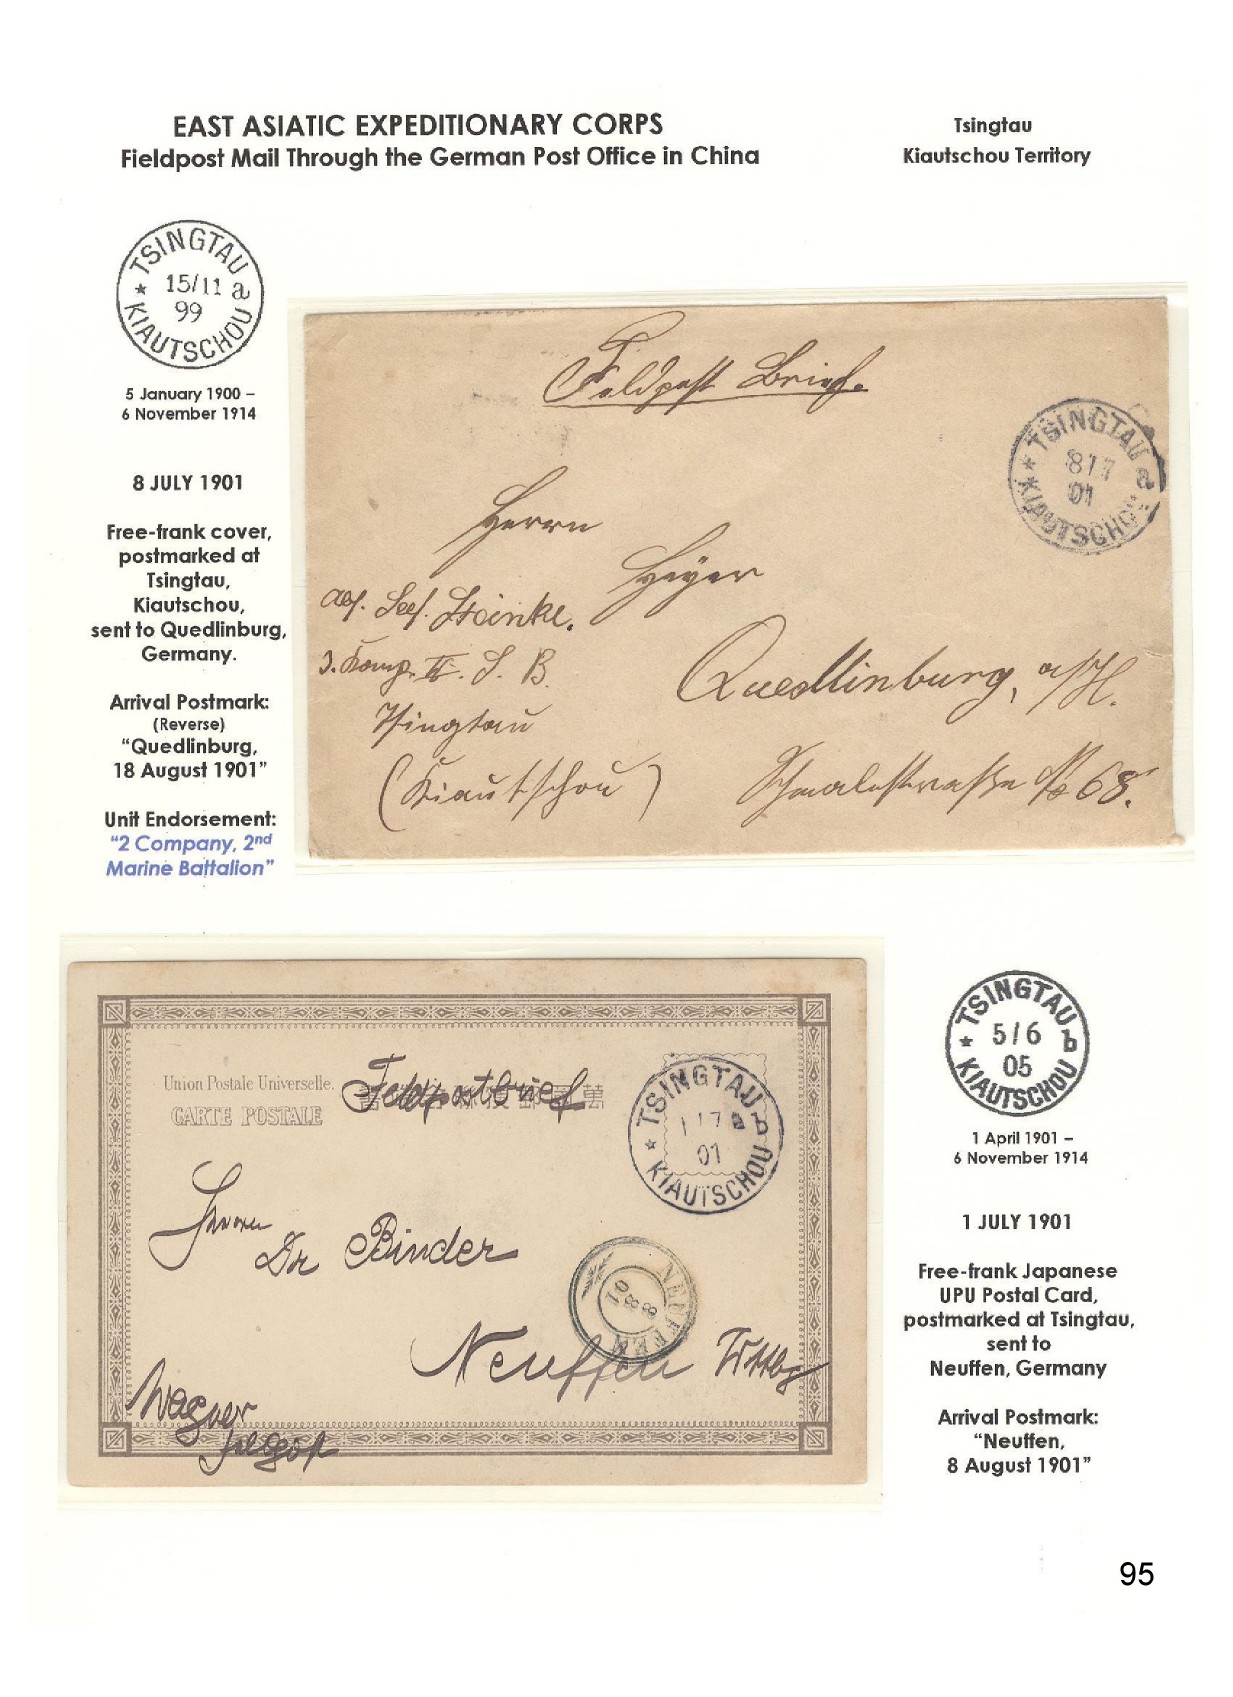 EAST ASIATIC EXPEDITIONARY CORPS
Fieldpost Mail Through the German Post Office in China
Tsingtau
Kiautschou Territory
TSINGTAU
* 15/11 a
99
KIAUTSCHOU
5 January 1900 –
6 November 1914
8 JULY 1901
Free-frank cover,
postmarked at
Tsingtau,
Kiautschou,
sent to Quedlinburg,
Germany.
Arrival Postmark:
(Reverse)
“Quedlinburg,
18 August 1901”
Unit Endorsement:
“2 Company, 2nd
Marine Battalion”
Feldpost Brief.
TSINGTAU
* 8/7 a
01
KIAUTSCHOU
Herrn
Heyer
Quedlinburg, a/H.
Schmalestraße No 68.
Abs. Sees. Steinke.
3. Komp. II. S. B.
Tsingtau
(Kiautschou)
Union Postale Universelle.
CARTE POSTALE
Feldpostbrief
TSINGTAU
* 1/7 b
01
KIAUTSCHOU
Herrn
Dr Binder
Neuffen Wttbg
NEUFFEN
8 8
01
Wagner
TSINGTAU
* 5/6 b
05
KIAUTSCHOU
1 April 1901 –
6 November 1914
1 JULY 1901
Free-frank Japanese
UPU Postal Card,
postmarked at Tsingtau,
sent to
Neuffen, Germany
Arrival Postmark:
“Neuffen,
8 August 1901”
95